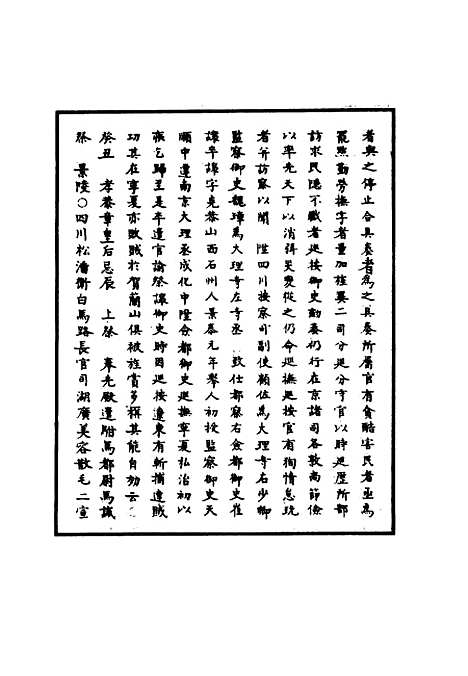 者與之停止合具奏者為之具奏所屬官有貪酷害民者亟為
罷黜勤勞撫字者量加旌異二司分巡分守官以時巡歷所部
訪求民隱不職者巡按御史劾奏仍行在京諸司各敦尚節儉
以率先天下以消弭災變從之仍命巡撫巡按官有徇情怠玩
者并訪察以聞 陞四川按察司副使顧佐為大理寺右少卿
監察御史魏璋為大理寺左寺丞 致仕都察右僉都御史崔
讓卒讓字克恭山西石州人景泰元年舉人初授監察御史天
順中遷南京大理丞成化中陞僉都御史巡撫寧夏弘治初以
疾乞歸至是卒遣官諭祭讓御史時因巡按遼東有斬捕遼賊
功其在寧夏亦敗賊於賀蘭山俱被旌賞多稱其能自効云
癸丑 孝恭章皇后忌辰 上祭 奉先殿遣駙馬都尉馬誠
祭 景陵○四川松潘衛白馬路長官司湖廣美容散毛二宣